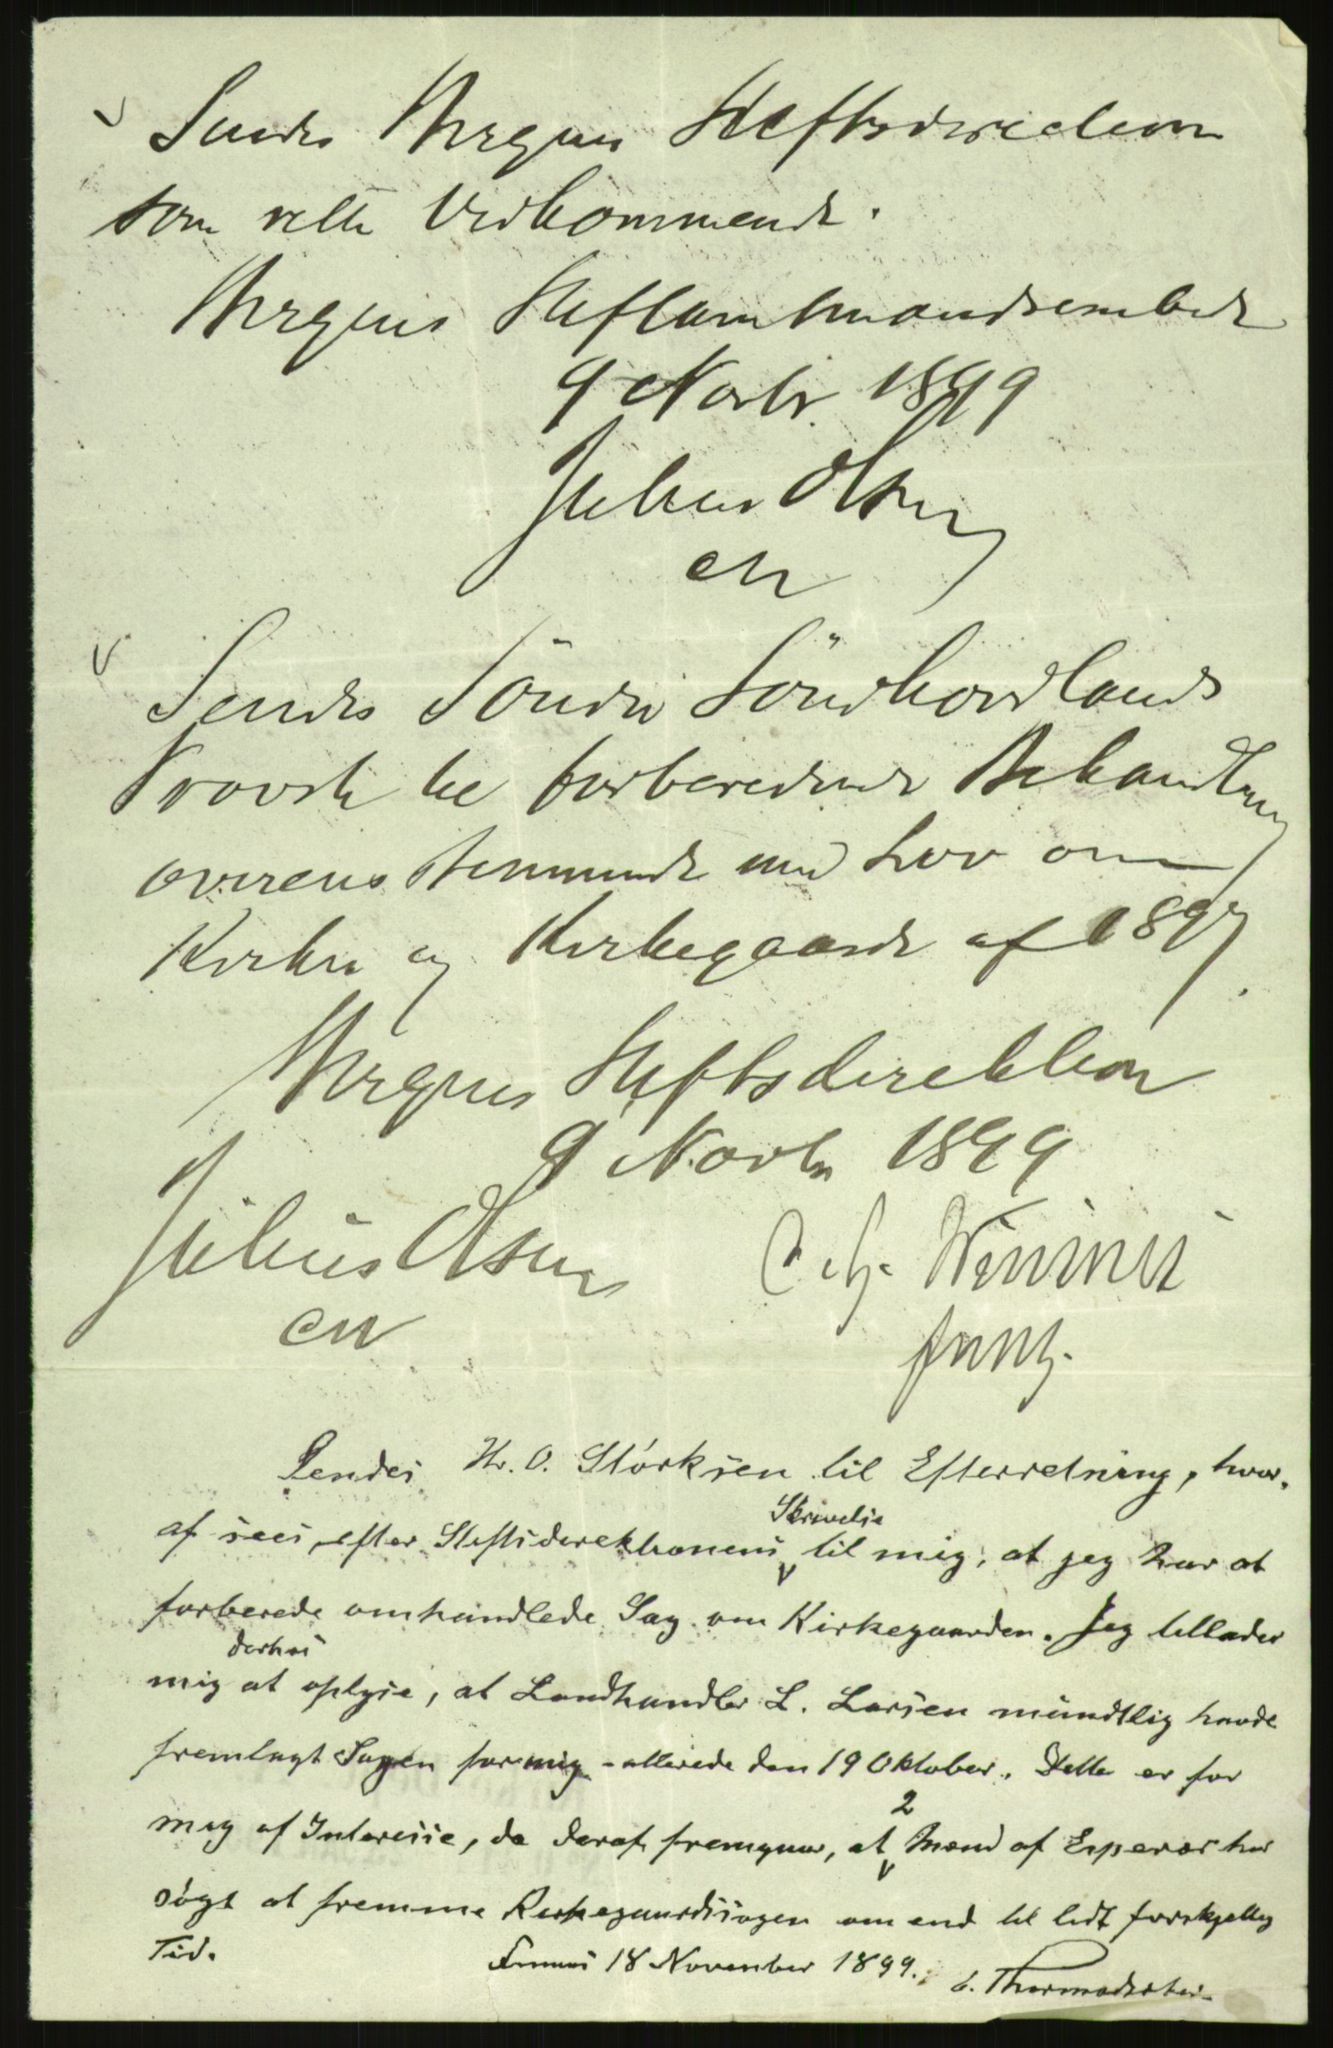 Sendes Bergens Stiftsdirection
som rette Vedkommende.
Bergens Stiftamtmandsembede
9 Novbr. 1899
Julius Olsen
Sendes Söndre Söndhordlands
Provsti til forberedende Behandling
overensstemmende med Lov om
Kirker og Kirkegaarde af 1897.
Bergens Stiftsdirektion
9 Novbr 1899
Julius Olsen
Sendes Hr. O. Størksen til Efterretning, hvor-
af sees, efter Stiftsdirektionens Skrivelse til mig, at jeg har at
forberede omhandlede Sag om Kirkegaarden. Jeg tillader
mig derhos at oplyse, at Landhandler L. Larsen mundtlig havde
fremlagt Sagen for mig - allerede den 19 Oktober. Dette er for
mig af Interesse, da deraf fremgaar, at 2 Mænd af Espevær har
søgt at fremme Kirkegaardssagen om end til lidt forskjellig
Tid.
Finnaas 18 November 1899. Thormodsæter